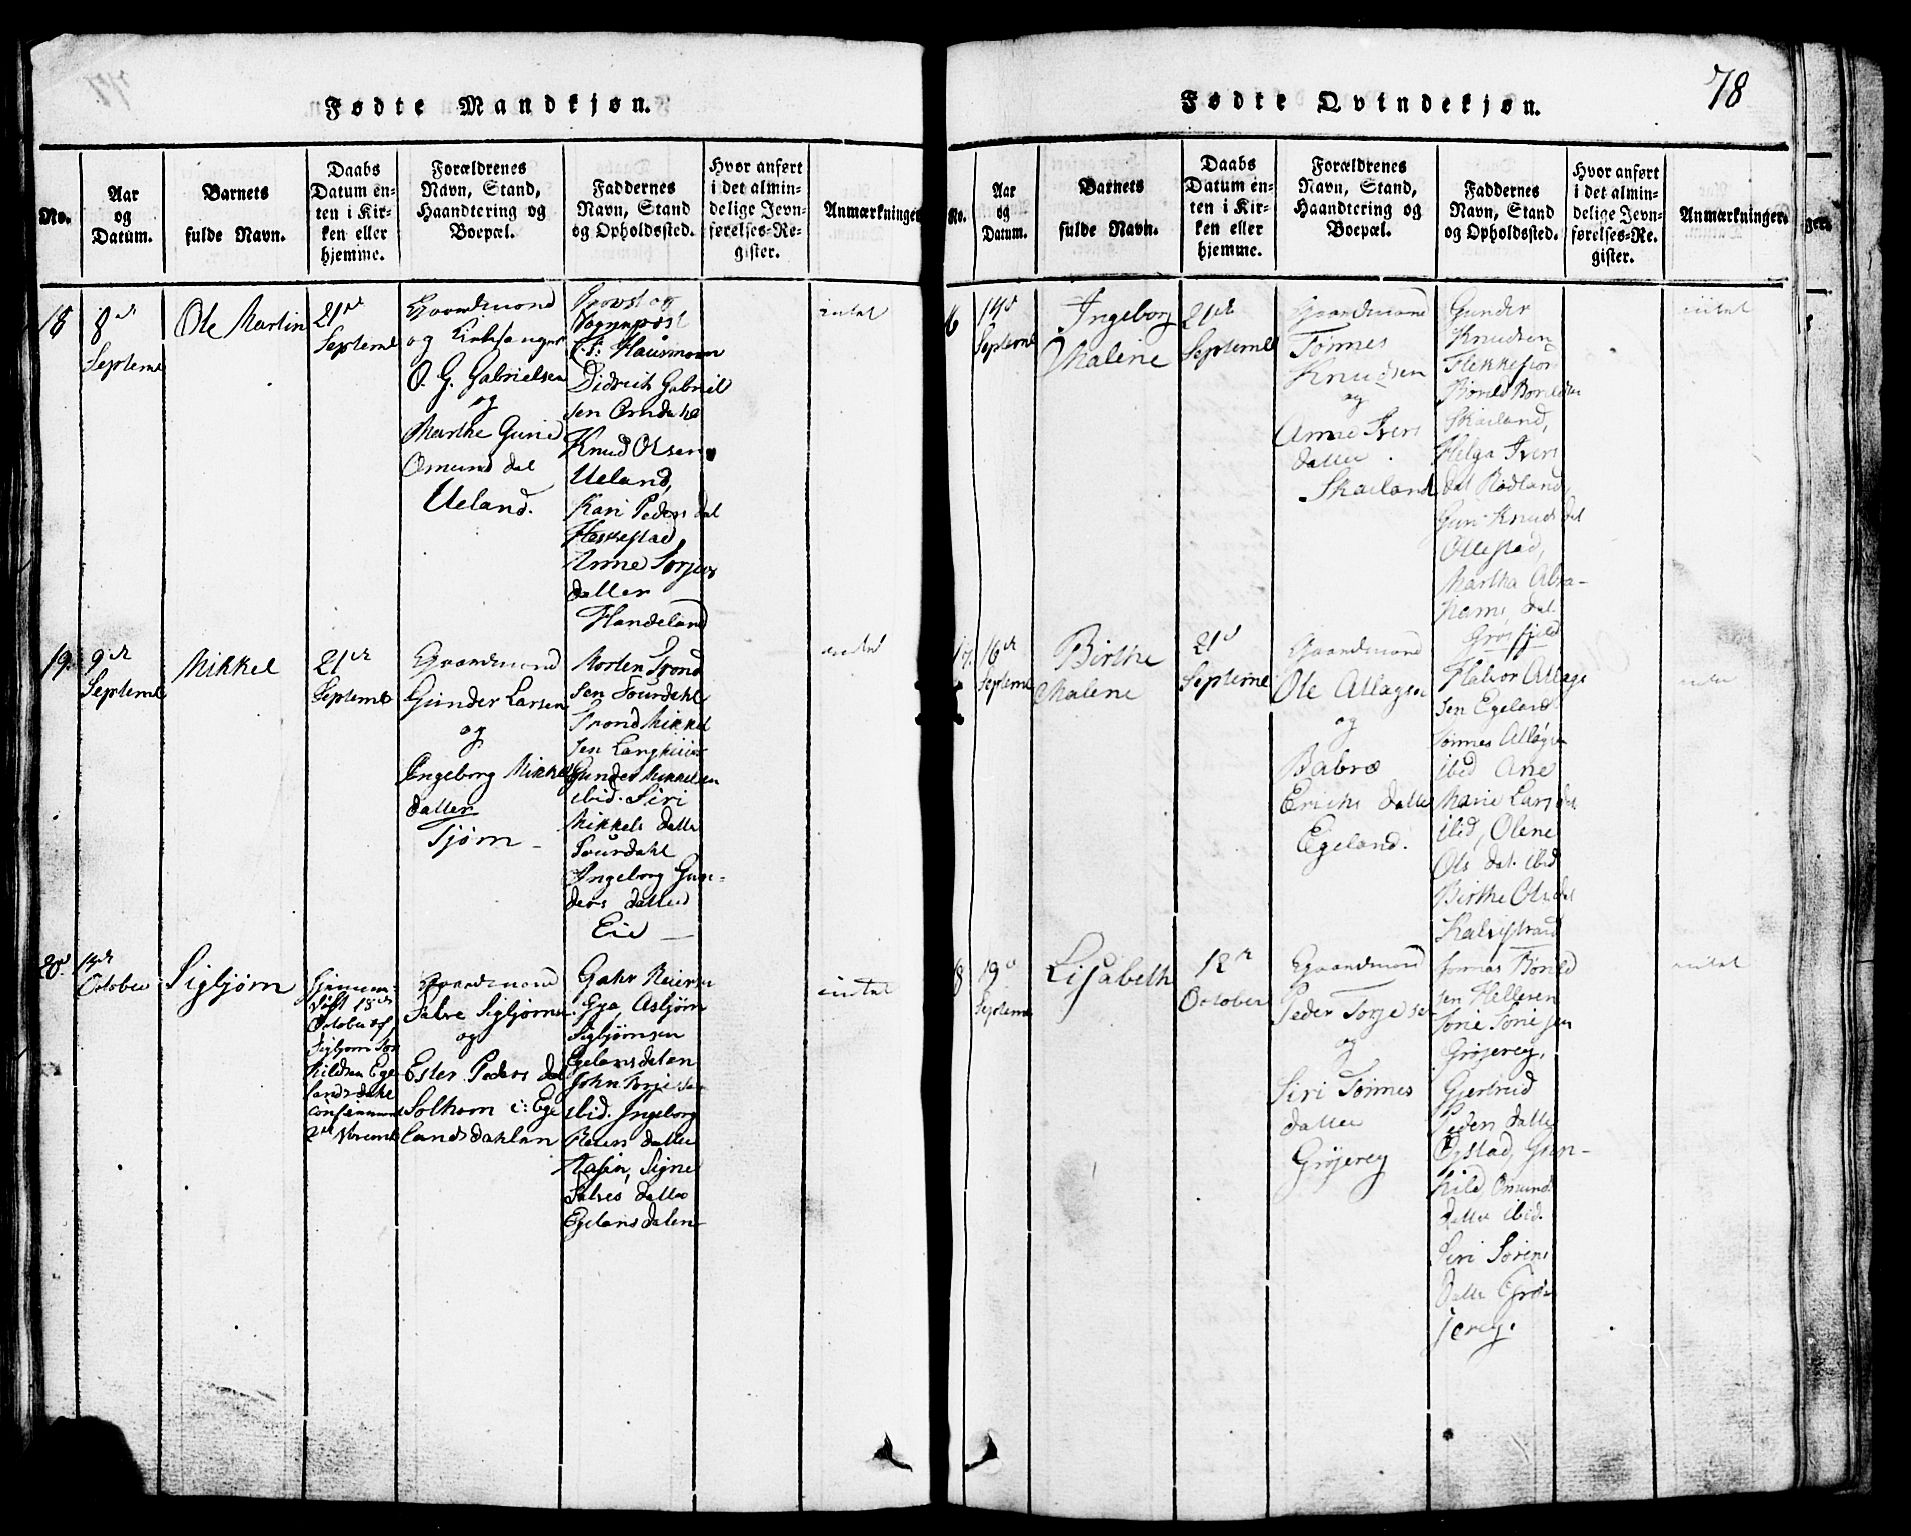 Fødte Mandkjøn.
No.
Aar
og
Datum.
Barnets
fulde Navn.
Daabs
Datum en-
ten i Kir-
ken eller
hjemme.
Forældrenes
Navn, Stand,
Haandtering og
Boepæl.
Faddernes
Navn, Stand
og Opholdssted.
Hvor anført
i det almin-
delige Jevn-
førelses-Re-
gister.
Anmærkninger
18
8de
Septembr
Ole Martin
21de
Septembr
Gaardmand
og Kirksanger
O. G. Gabrielsen
og
Marthe Gurie
Omund dat
Ueland.
Provst og
Hausmann
Didrich Gabriel
sen Omdahl
Knud Olsen
Ueland,
Kari Peders dat
Heskestad,
Anne Torjers
datter
Handeland
intet
19.
9de
Septembr
Mikkel
21de
Septembr
Gaardmand
Gunder Larsen
og
Ingeborg Mikkels
datter
Tjørn
Morten Trond
sen Sourdahl
Trond Mikkel
sen
Gunder Mikkelsen
ibid. Siri
Mikkels datter
Sourdahl
Ingeborg Gun-
ders datter
Eie
intet
20
October
Sigbjørn
Hjemme-
døbt 15de
October af
Sigbjørn
Ege
landsdahl
Gaardmand
Salve Sigbjørnsen
og
Ester Peders dat
Solhom i: Ege
landsdahlen
Reiersen
Asbjørn
Sigbjørnsen
Egelandsdalen
John Torjesen
ibid. Ingeborg
Reiers datter
Signe
Salves datter
Egelansdalen
intet
Fødte Qvindekjøn.
78
No.
Aar
og
Datum.
Barnets
fulde Navn.
Daabs
Datum en-
ten i Kir-
ken eller
hjemme.
Forældrenes
Navn, Stand,
Haandtering og
Boepæl.
Faddernes
Navn, Stand
og Opholdssted.
Hvor anført
i det almin-
delige Jevn-
førelses-Re-
gister.
Anmærkninger.
6
Septembr
Ingeborg
Malene
21de
Septembr
Gaardmand
Tønnes
Knudsen
og
Anne Ivers
datter
Skailand
Gunder
Knudsen
Flekkefior
Skailand,
Helga Ivers
dat Rødland,
Guri Knuds dat
Ollestad,
Martha Abra-
hams dat
Grosfjeld
intet
17.
16de
Septembr
Birthe
Malene
21d
Septembr
Gaardmand
Ole Atlagsen
og
Babro
Erichs datter
Egeland.
Halvor Atlag
sen Egeland
Tønnes Atlagsen
ibid Ane
Marie Lars dat
ibid, Olene
Ols dat. ibid
Birthe Ols dat
intet
8
19d
Septembr
Lisabeth
12te
October
Gaardmand
Peder Torjesen
og
Siri Tønnes
datter
Grøjerey
sen Helleren
Grøjerey,
Gjertrud
Peders datter
Gun-
hild Omund
datter ibid.
Siri Sørens
datter Grø
jerey.
intet